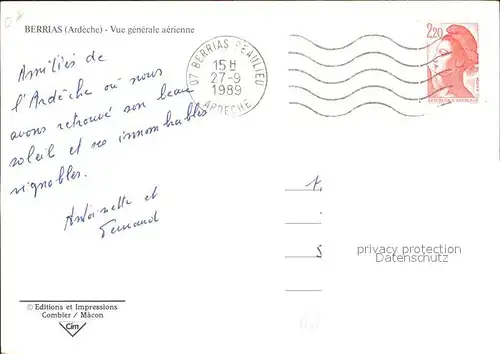 07
BERRIAS (Ardèche) - Vue générale aérienne
07 BERRIAS BEAULIEU
15 H
27-9
1989
ARDECHE
2,20
REPUBLIQUE FRANCAISE
Amitiés de
l'Ardèche où nous
avons retrouvé son beau
soleil et ses innombrables
vignobles.
Antoinette et
Fernand
privacy protection
Datenschutz
© Editions et Impressions
Combier / Mâcon
Cim